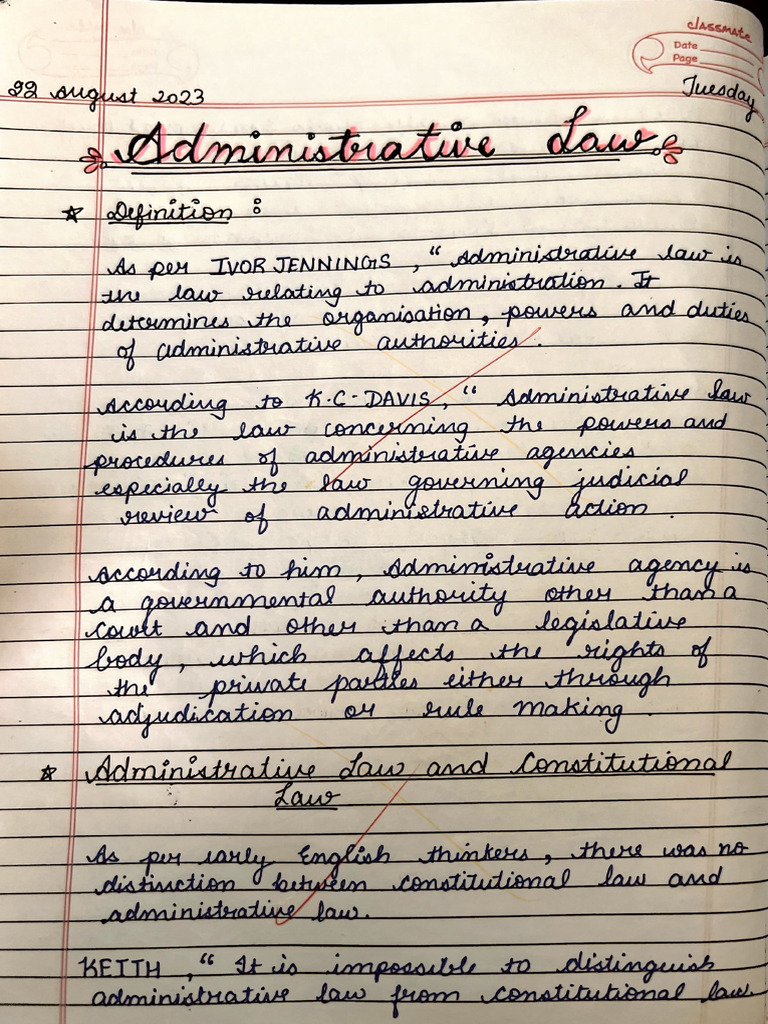 classmate
Date
Page
22 August 2023
Tuesday
Administrative Law
Definition :
As per IVOR JENNINGS , " Administrative law is
the law relating to administration. It
determines the organisation, powers and duties
of administrative authorities.
According to K.C-DAVIS, " Administrative law
is the law concerning the powers and
procedures of administrative agencies
especially the law governing judicial
review of administrative action .
According to him, Administrative agency is
a governmental authority other than a
court and other than a legislative
body, which affects the rights of
the private parties either through
adjudication or rule making
Administrative Law and Constitutional
Law
As per early English thinkers, there was no
distinction between constitutional law and
administrative law.
KEITH , " It is impossible to distinguish
administrative law from constitutional law.